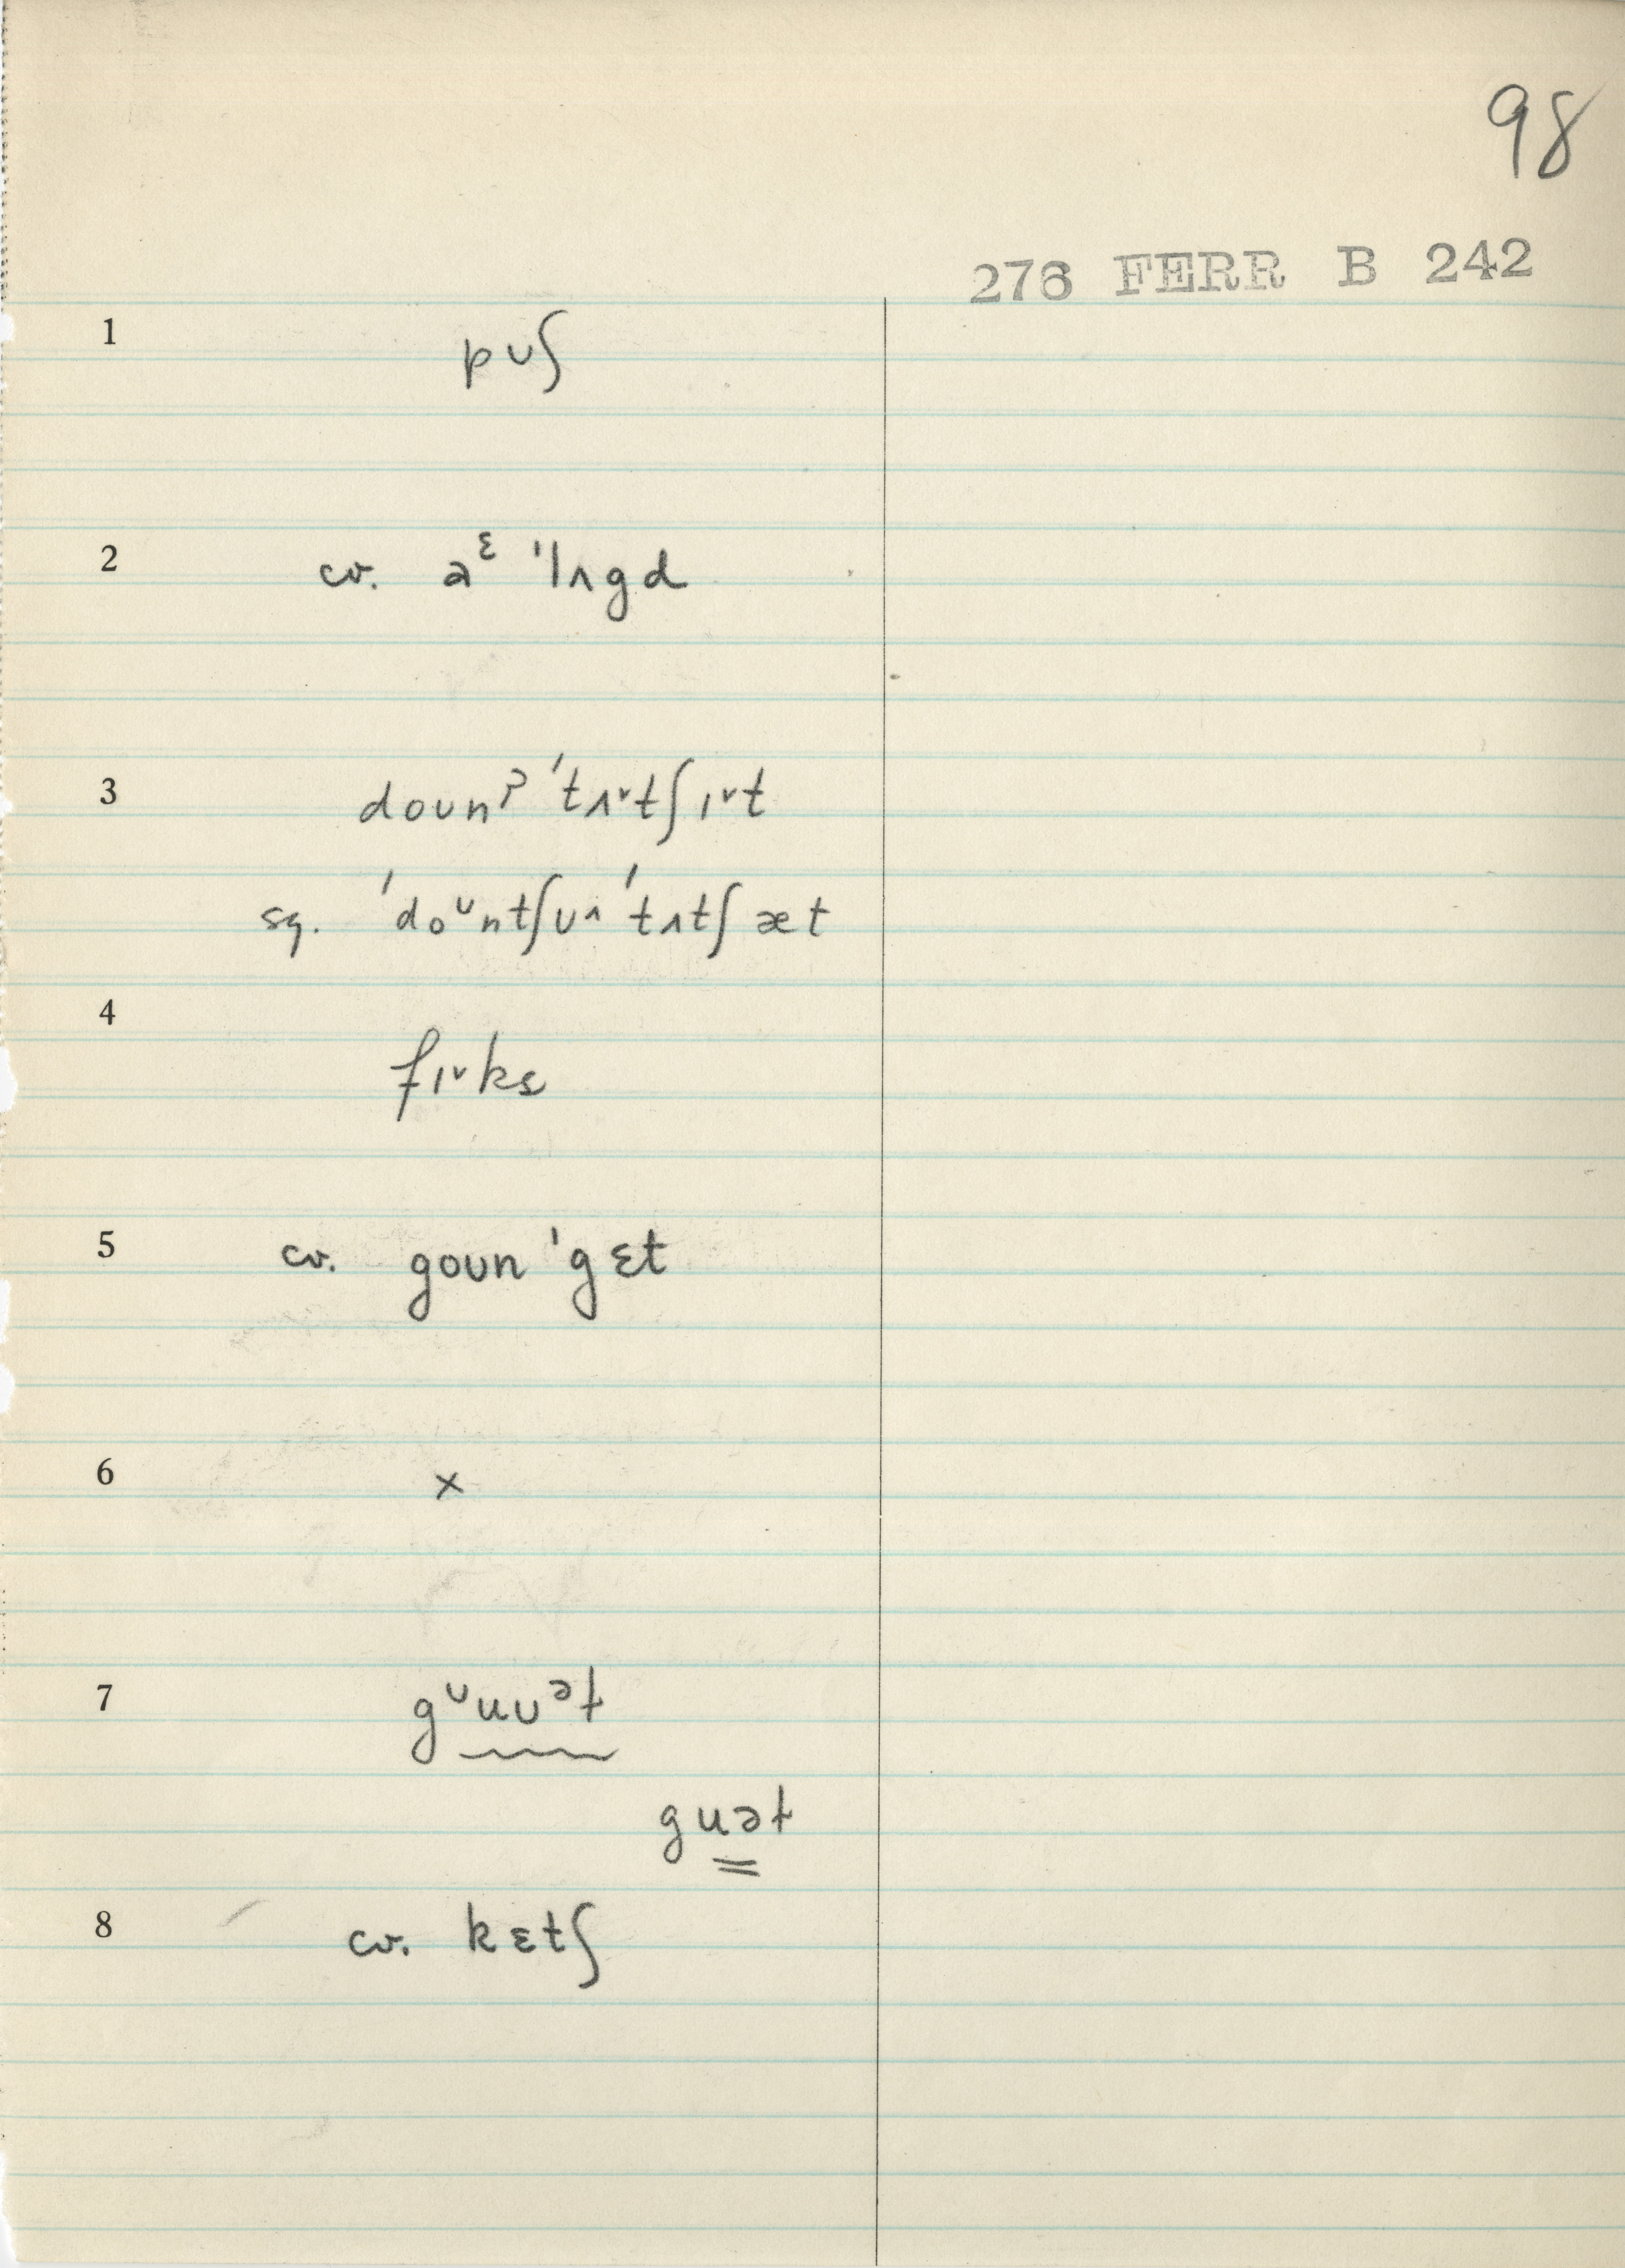 98
276 FERR B 242
1 pʊʃ
2 cv. aᵋ ˈlʌgd
3 doʊnˀ ˈtʌ˅tʃɪ˅t
sq. ˈdoᶷntʃʊ˄ ˈtʌtʃæt
4 fɪ˅ks
5 cv. goʊn ˈgɛt
6 x
7 gᶷuʊᵊɫ
guəɫ
8 cv. kɛtʃ